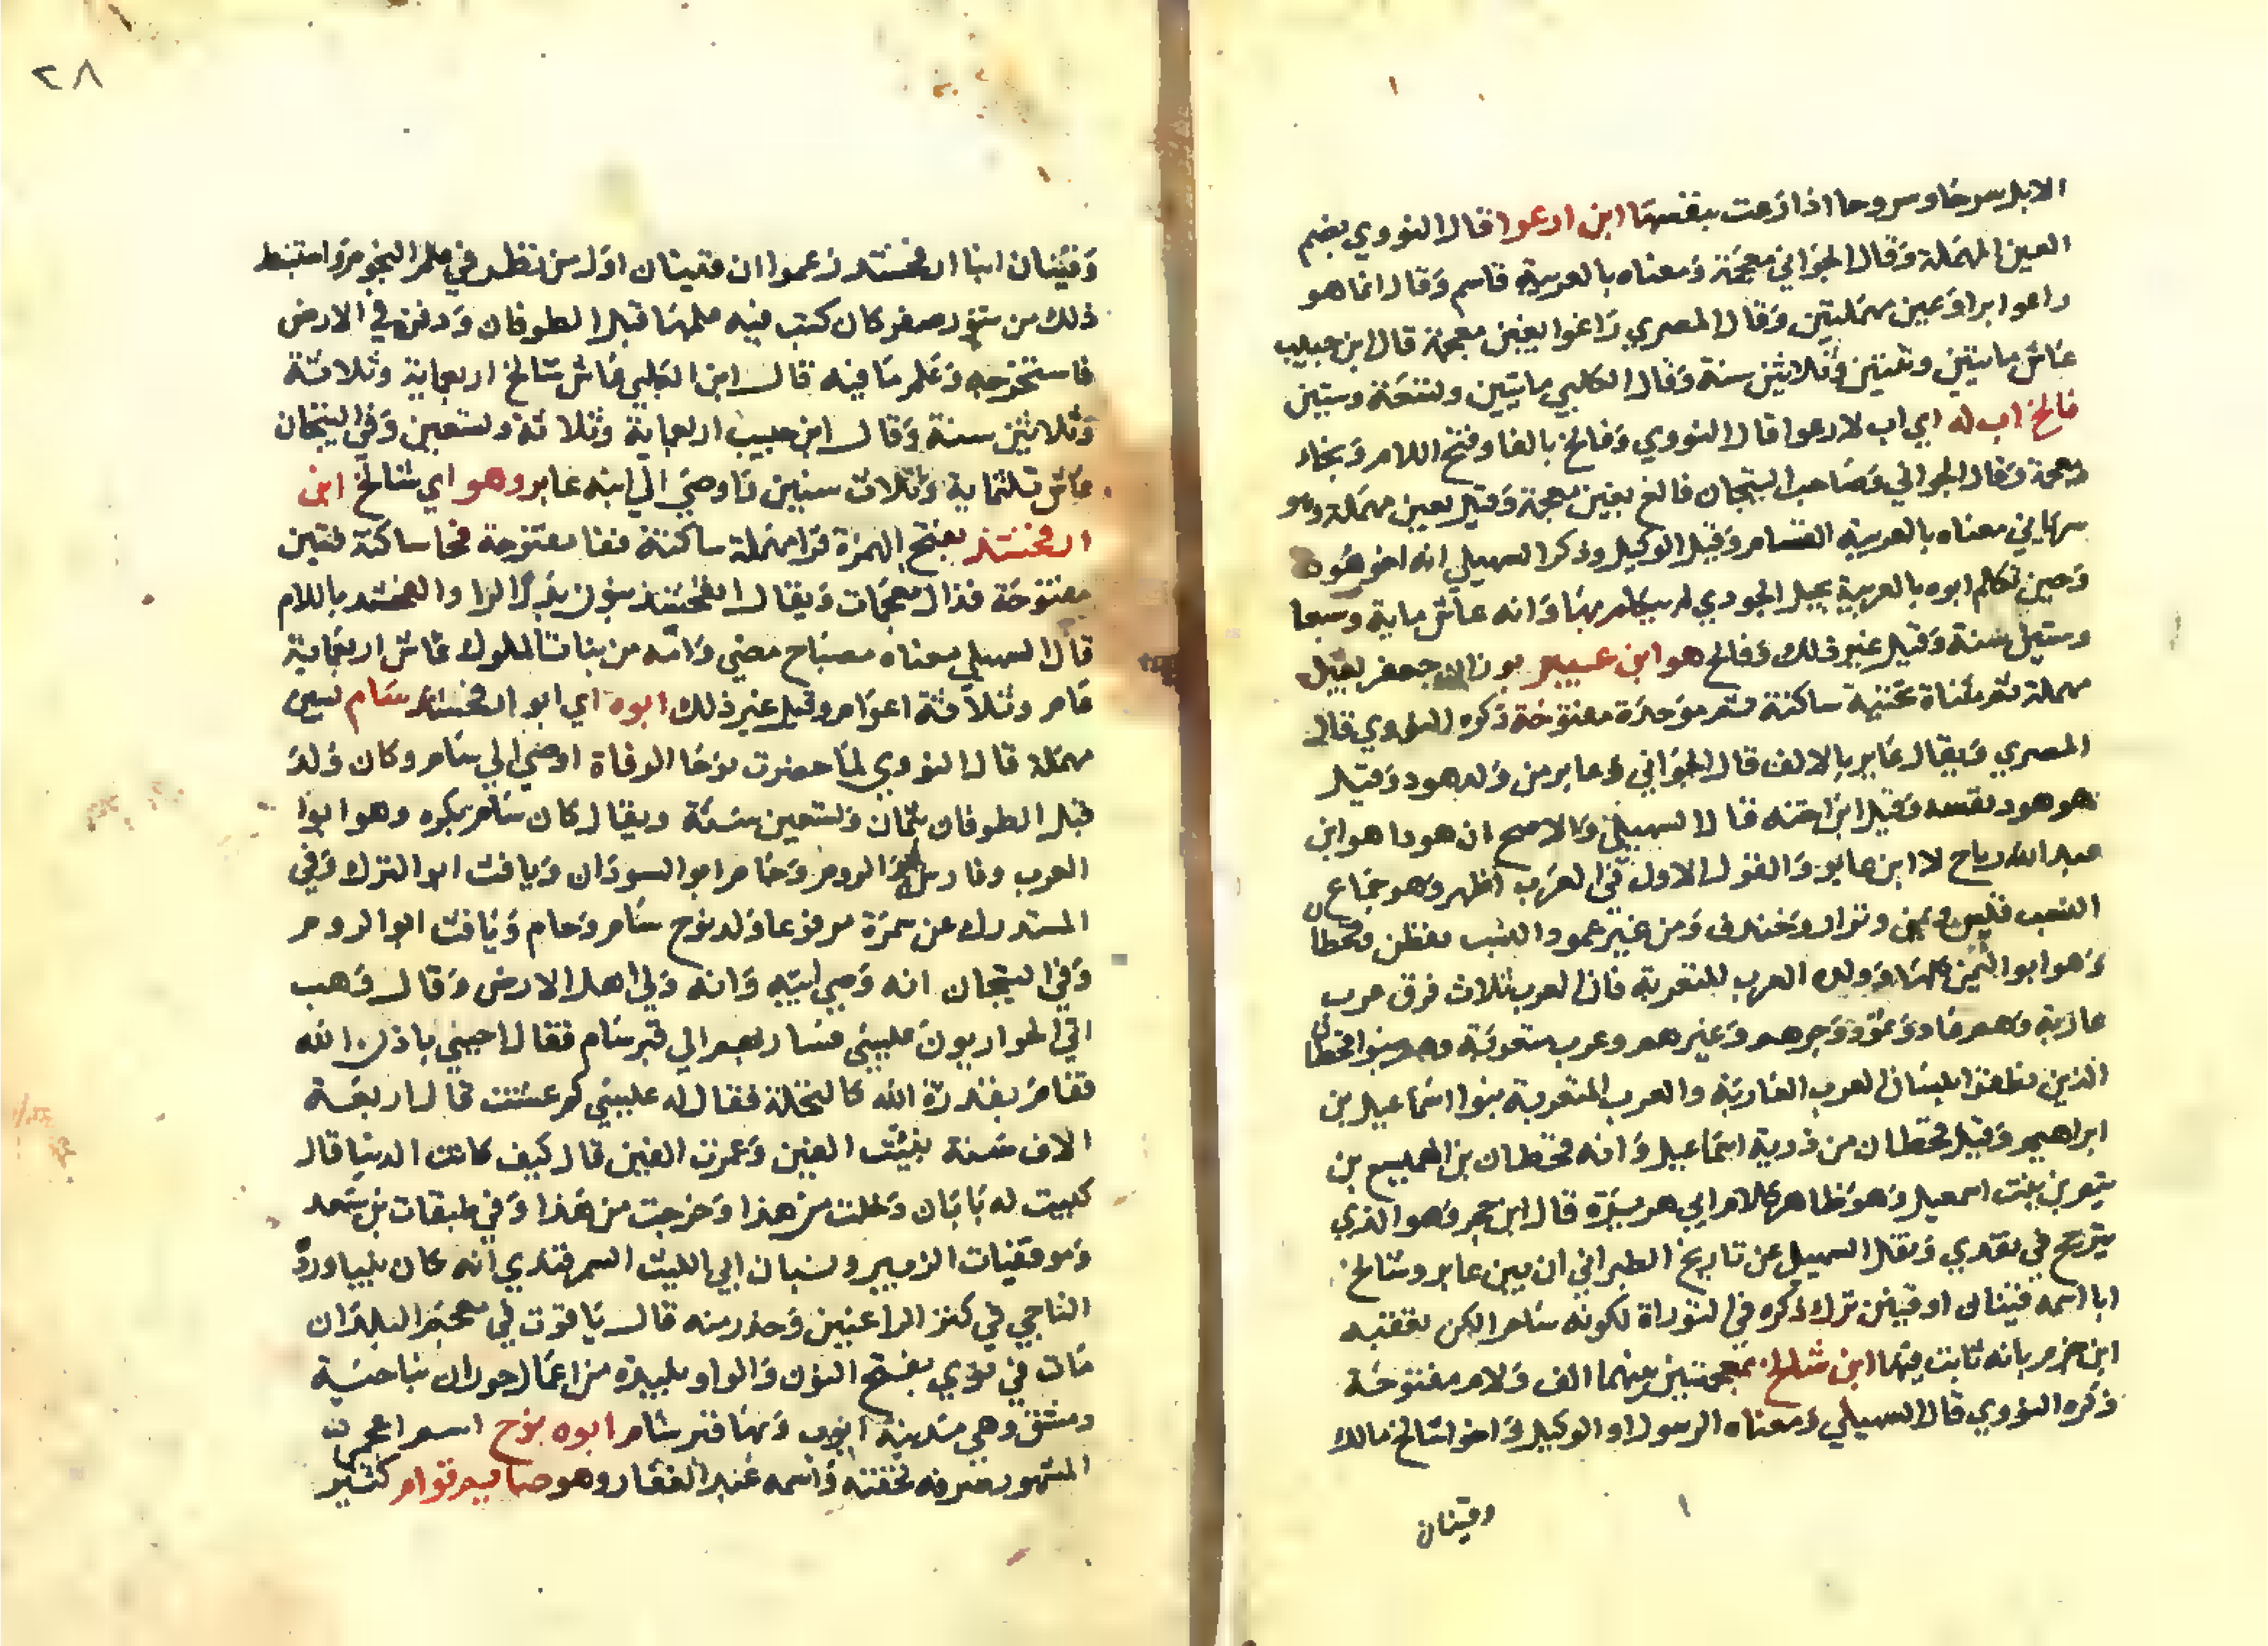 الابل سرحا وسروحا اذا رعت بنفسها ابن ارعوا قال النووي بضم
العين المهملة وقال الجواني معجمة ومعناه بالعربية قاسم وقال انما هو
راعوا براو عين مهملتين وقال المصري راغوا بغين معجمة قال ابن حبيب
عاش مايتين وثنتين وثلاثين سنة وقال الكلبي مايتين وتسعة وستين
فالخ اب له اي اب لارعوا قال النووي وفالخ بالفا وفتح اللام وبخاء
معجمة وقال الجواني وصاحب التيجان فالغ بغين معجمة وقيل بعين مهملة وهو
سرياني معناه بالعربية القسام وقيل الوكيل وذكر السهيلي انه اخو هود
وحين تكلم ابوه بالعربية بجبل الجودي لم يتكلم بها وانه عاش ماية وسبعا
وستين سنة وقيل غير ذلك وفالخ هو ابن عيبر بوزان جعفر بعين
مهملة ثم مثناة تحتية ساكنة ثم موحدة مفتوحة ذكره النووي قال
المصري ويقال عابر بالالف قال الجواني وعابر من ولد هود وقيل
هو هود نفسه وقيل ابن اخته قال السهيلي والاصح ان هودا هو ابن
عبد الله رباح لا ابن عابر والقول الاول في العرب اظهر وهو جماع
النسب قيس ويمن ونزار وخندف ومن غير عمود النسب يقطن وقحطان
وهو ابو اليمن كلها وولده العرب المتعربة فان العرب ثلاث فرق عرب
عاربة وهم عاد وثمود وجرهم وغيرهم وعرب متعربة وهم بنوا قحطان
الذين نطقوا بلسان العرب العاربة والعرب المتعربة بنوا اسماعيل بن
ابراهيم وقيل قحطان من ذرية اسماعيل وانه قحطان بن الهميسع بن
تيم بن بنت اسمعيل وهو ظاهر كلام ابي هريرة قال ابن حجر وهو الذي
يترجح في نقدي ونقل السهيلي عن تاريخ الطبراني ان بين عابر وشالخ
ابا اسمه قينان او قينين ترك ذكره في التوراة لكونه ساحرا لكن تعقبه
ابن حزم بانه ثابت فيها ابن شالخ بمعجمتين بينهما الف ولام مفتوحة
ذكره النووي قال السهيلي ومعناه الرسول او الوكيل واخوا شالخ مالك
وقينان
٢٨
وقينان ابنا ارفخشد زعموا ان قينان اول من نظر في علم النجوم واستنبط
ذلك من ستور صفر كان كتب فيه علمها قبل الطوفان ودفن في الارض
فاستخرجه وعلم ما فيه قال ابن الكلبي عاش شالخ اربعماية وثلاثة
وثلاثين سنة وقال ابن حبيب اربعماية وثلاثة وتسعين وفي التيجان
عاش ثلثماية وثلاث سنين واوصى الي ابنه عابر وهو اي شالخ ابن
ارفخشد بفتح الهمزة فرا مهملة ساكنة ففا مفتوحة فخا ساكنة فشين
مفتوحة فذال معجمات ويقال انفخشذ بنون بدل الرا والفخشد باللام
قال السهيلي معناه مصباح مضي وامه من بنات الملوك عاش اربعماية
عام وثلاثة اعوام وقيل غير ذلك ابوه اي ابو ارفخشد سام بسين
مهملة قال النووي لما حضرت نوحا الوفاة اوصى الي سام وكان ولد
قبل الطوفان بثمان وتسعين سنة ويقال كان سام بكره وهو ابوا
العرب وفارس والروم وحام ابو السودان ويافث ابو الترك وفي
المستدرك عن سمرة مرفوعا ولد نوح سام وحام ويافث ابو الروم
وفي التيجان انه وصي ابيه وانه ولي اهل الارض وقال وهب
اتي الحواريون عليسى فسار بهم الي قبر سام فقال احييني باذن الله
فقام بقدرة الله كالنخلة فقال له عليسى كم عشت قال اربعة
الاف سنة نبئت الفين وعمرت الفين قال كيف كانت الدنيا قال
كبيت له بابان دخلت من هذا وخرجت من هذا وفي طبقات بن سعد
وموفقيات الزبير وبستان ابي الليث السمرقندي انه كان نبيا ورد
الناجي في كنز الراغبين وحذر منه قال ياقوت في معجم البلدان
مات في نوي بفتح النون والواو بليدة من اعمال حوران بناحية
دمشق وهي مدينة ايوب وبها قبر سام ابوه نوح اسم اعجمي
المشهور صرفه لخفته واسمه عبد الغفار وهو صايم قوام كثير